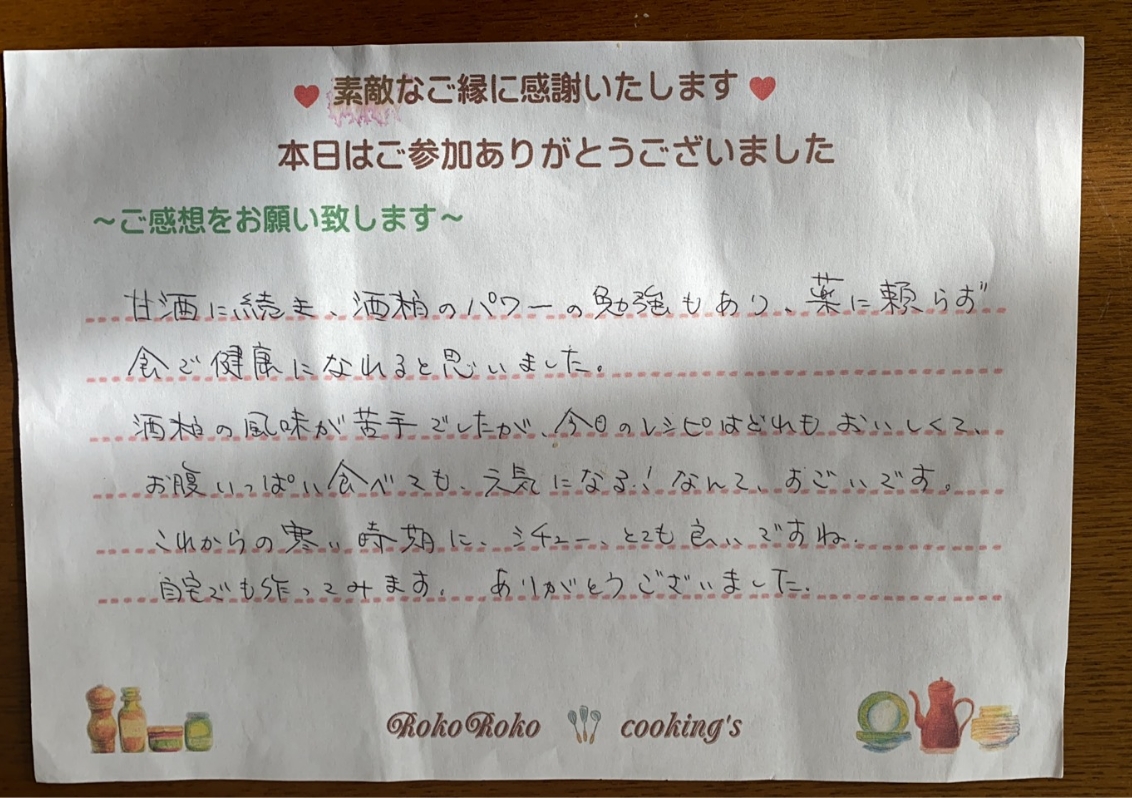 素敵なご縁に感謝いたします
本日はご参加ありがとうございました
～ご感想をお願い致します～
甘酒に続き、酒粕のパワーの勉強もあり、薬に頼らず
食で健康になれると思いました。
酒粕の風味が苦手でしたが、今日のレシピはどれもおいしくて、
お腹いっぱい食べても、元気になる!なんて、すごいです。
これからの寒い時期に、シチュー、とても良いですね.
自宅でも作ってみます. ありがとうございました.
RokoRoko cooking's